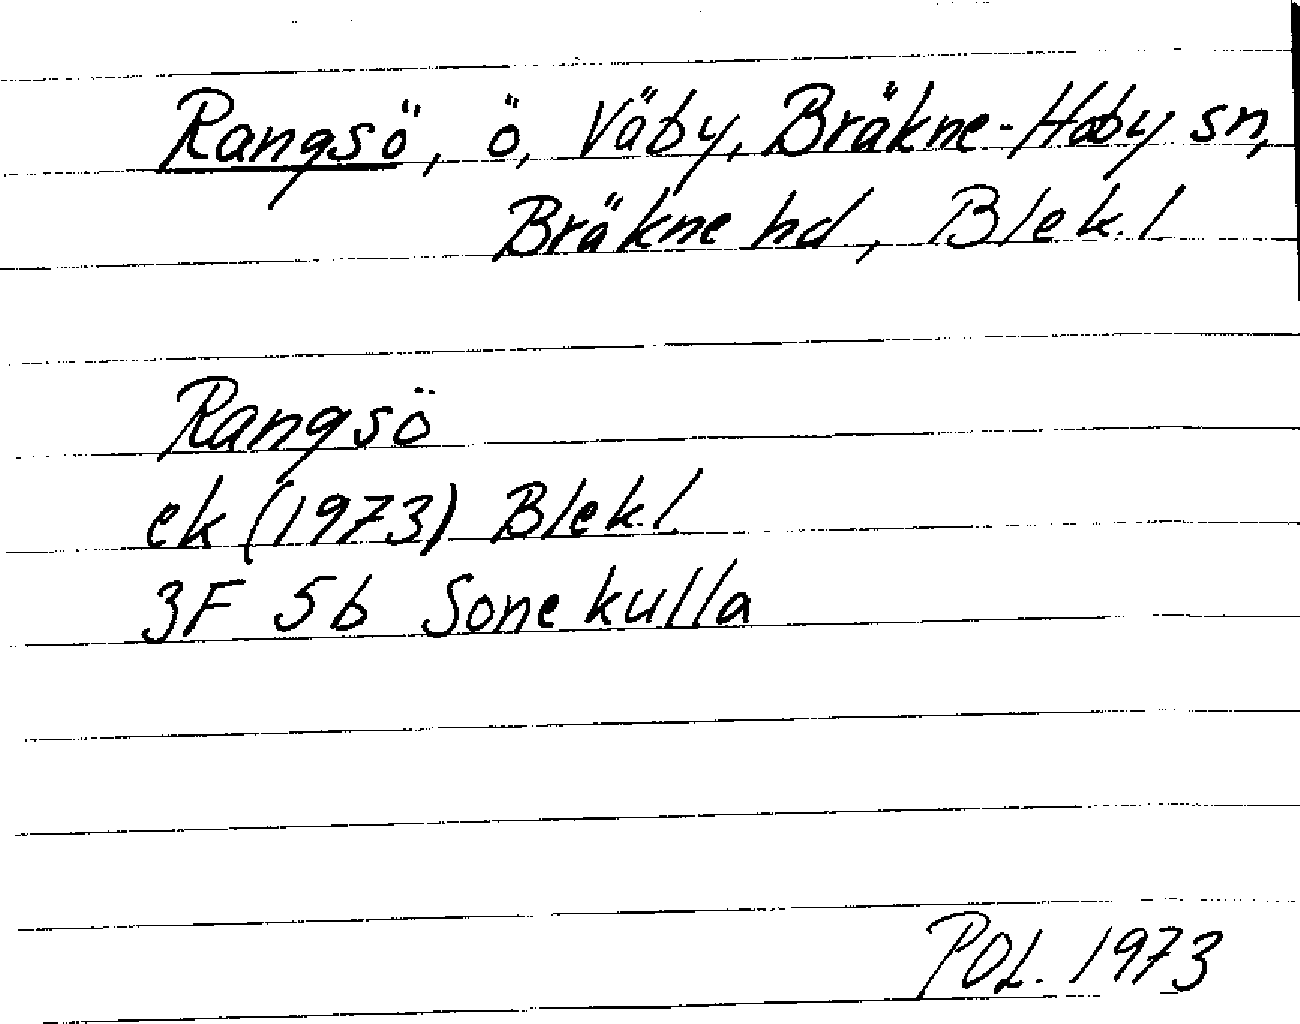 Rangsö, ö, Väby, Bräkne-Hoby sn,
Bräkne hd, Blek. l
Rangsö
ek (1973) Blek. l
3F 5b Sonekulla
POL. 1973